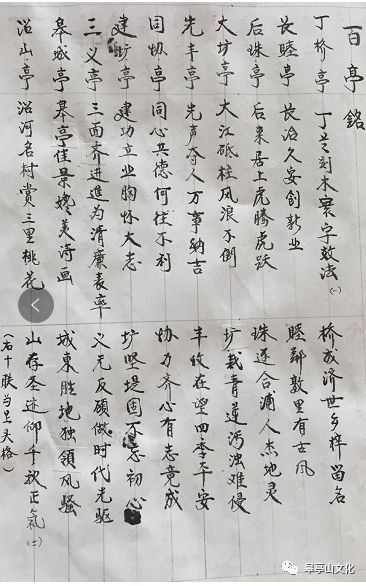 百亭銘
丁桥亭 丁兰刻木寰宇效法(一)
长睦亭 长治久安创新业
后珠亭 后来居上虎腾虎跃
大圹亭 大江砥柱风浪不倒
先丰亭 先声夺人万事纳吉
同协亭 同心共德何往不利
建圹亭 建功立业胸怀大志
三义亭 三面齐进為清廉表率
皋城亭 皋亭佳景美诗画
沿山亭 沿河名村赏三里桃花
桥成济世乡梓留名
睦鄰敦里有古风
珠还合浦人杰地灵
圹栽青莲污浊难侵
丰收在望四季平安
协力齐心有志竟成
圹坚堤固不忘初心
义无反顾做时代先驱
城東胜地独領风骚
山存圣迹仰千秋正氣(二)
(右十联为呈天格)
皋亭山文化